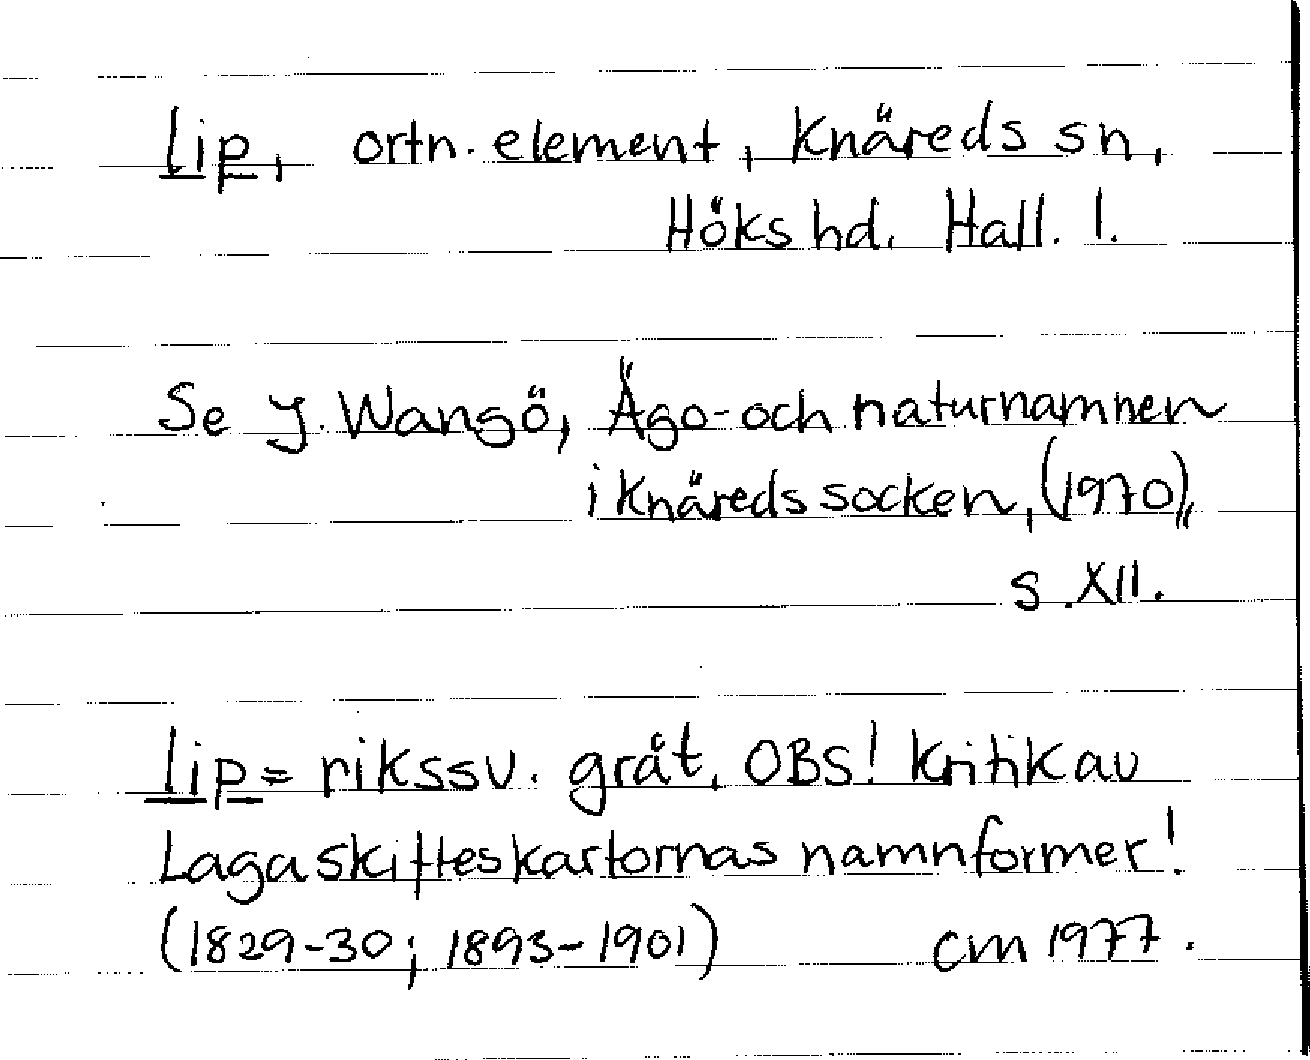 lip, ortn. element, Knäreds sn,
Höks hd. Hall. l.
Se J. Wangö, Ägo- och naturnamnen
i Knäreds socken, (1970),
s. XII.
lip = rikssv. gråt. OBS! Kritik av
Lagaskifteskartornas namnformer!
(1829-30; 1893-1901) cm 1977.